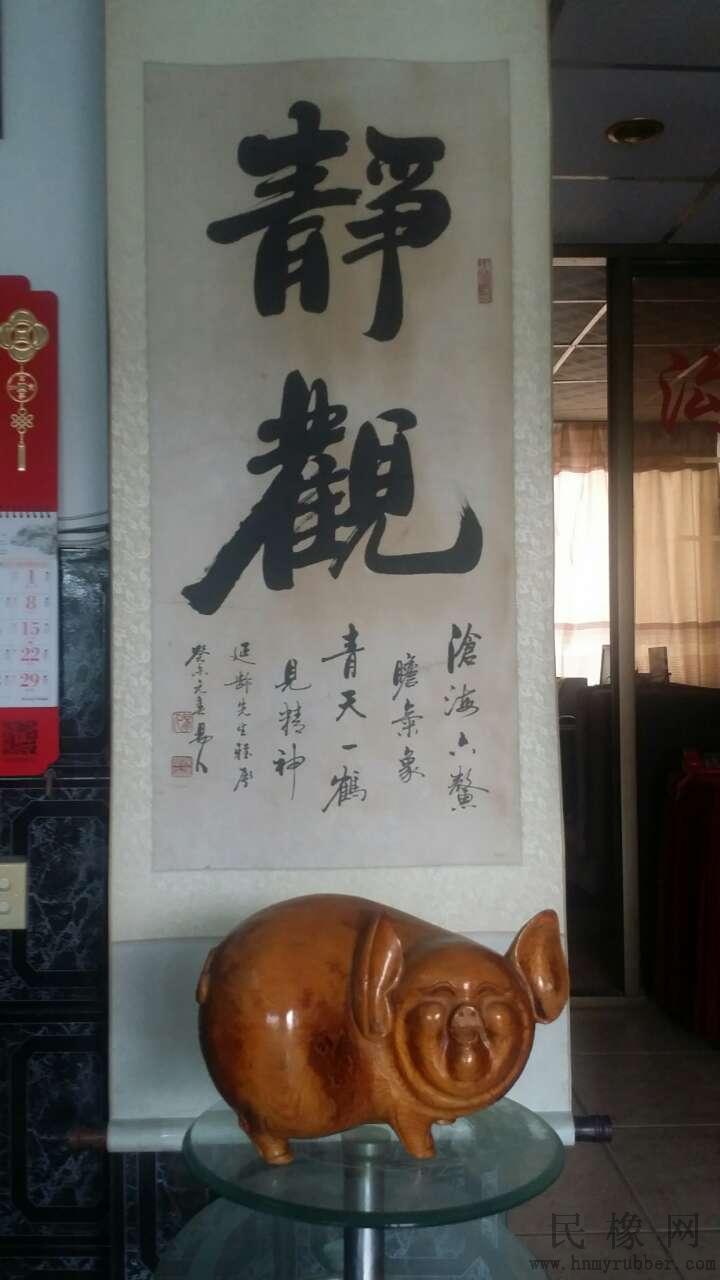 靜
觀
滄海六鰲
瞻氣象
青天一鶴
見精神
延齡先生雅屬
癸未元
1
8
15
22
29
民橡网
www.hnmyrubber.com